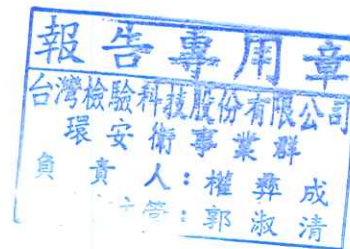 報告專用章
台灣檢驗科技股份有限公司
環安衛事業群
負責人：權彝成
管：郭淑清